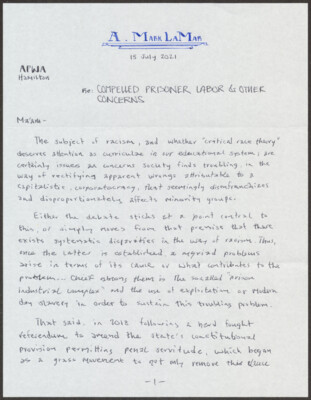 A. MARK LAMAR
15 July 2021
APWA
Hamilton
Re: COMPELLED PRISONER LABOR & OTHER
CONCERNS
Ma'am -
The subject of racism, and whether "critical race theory"
deserves attention as curriculum in our educational system; are
certainly issues as concerns society finds troubling, in the
way of rectifying apparent wrongs attributable to a
capitalistic, corporatocracy, that seemingly disenfranchises
and disproportionately affects minority groups.
Either the debate sticks at a point central to
this, or simply moves from that premise that there
exists systematic disparities in the way of racism. Thus,
once the latter is established a myriad problems
arise in terms of its cause or what contributes to the
problem... Chief among them is the so called "prison
industrial complex" and the use of exploitation or modern
day slavery in order to sustain this troubling problem.
That said, in 2018 following a hard fought
referendum to amend the state's constitutional
provision permitting penal servitude, which began
as a grass movement to get only remove that clause
- 1 -